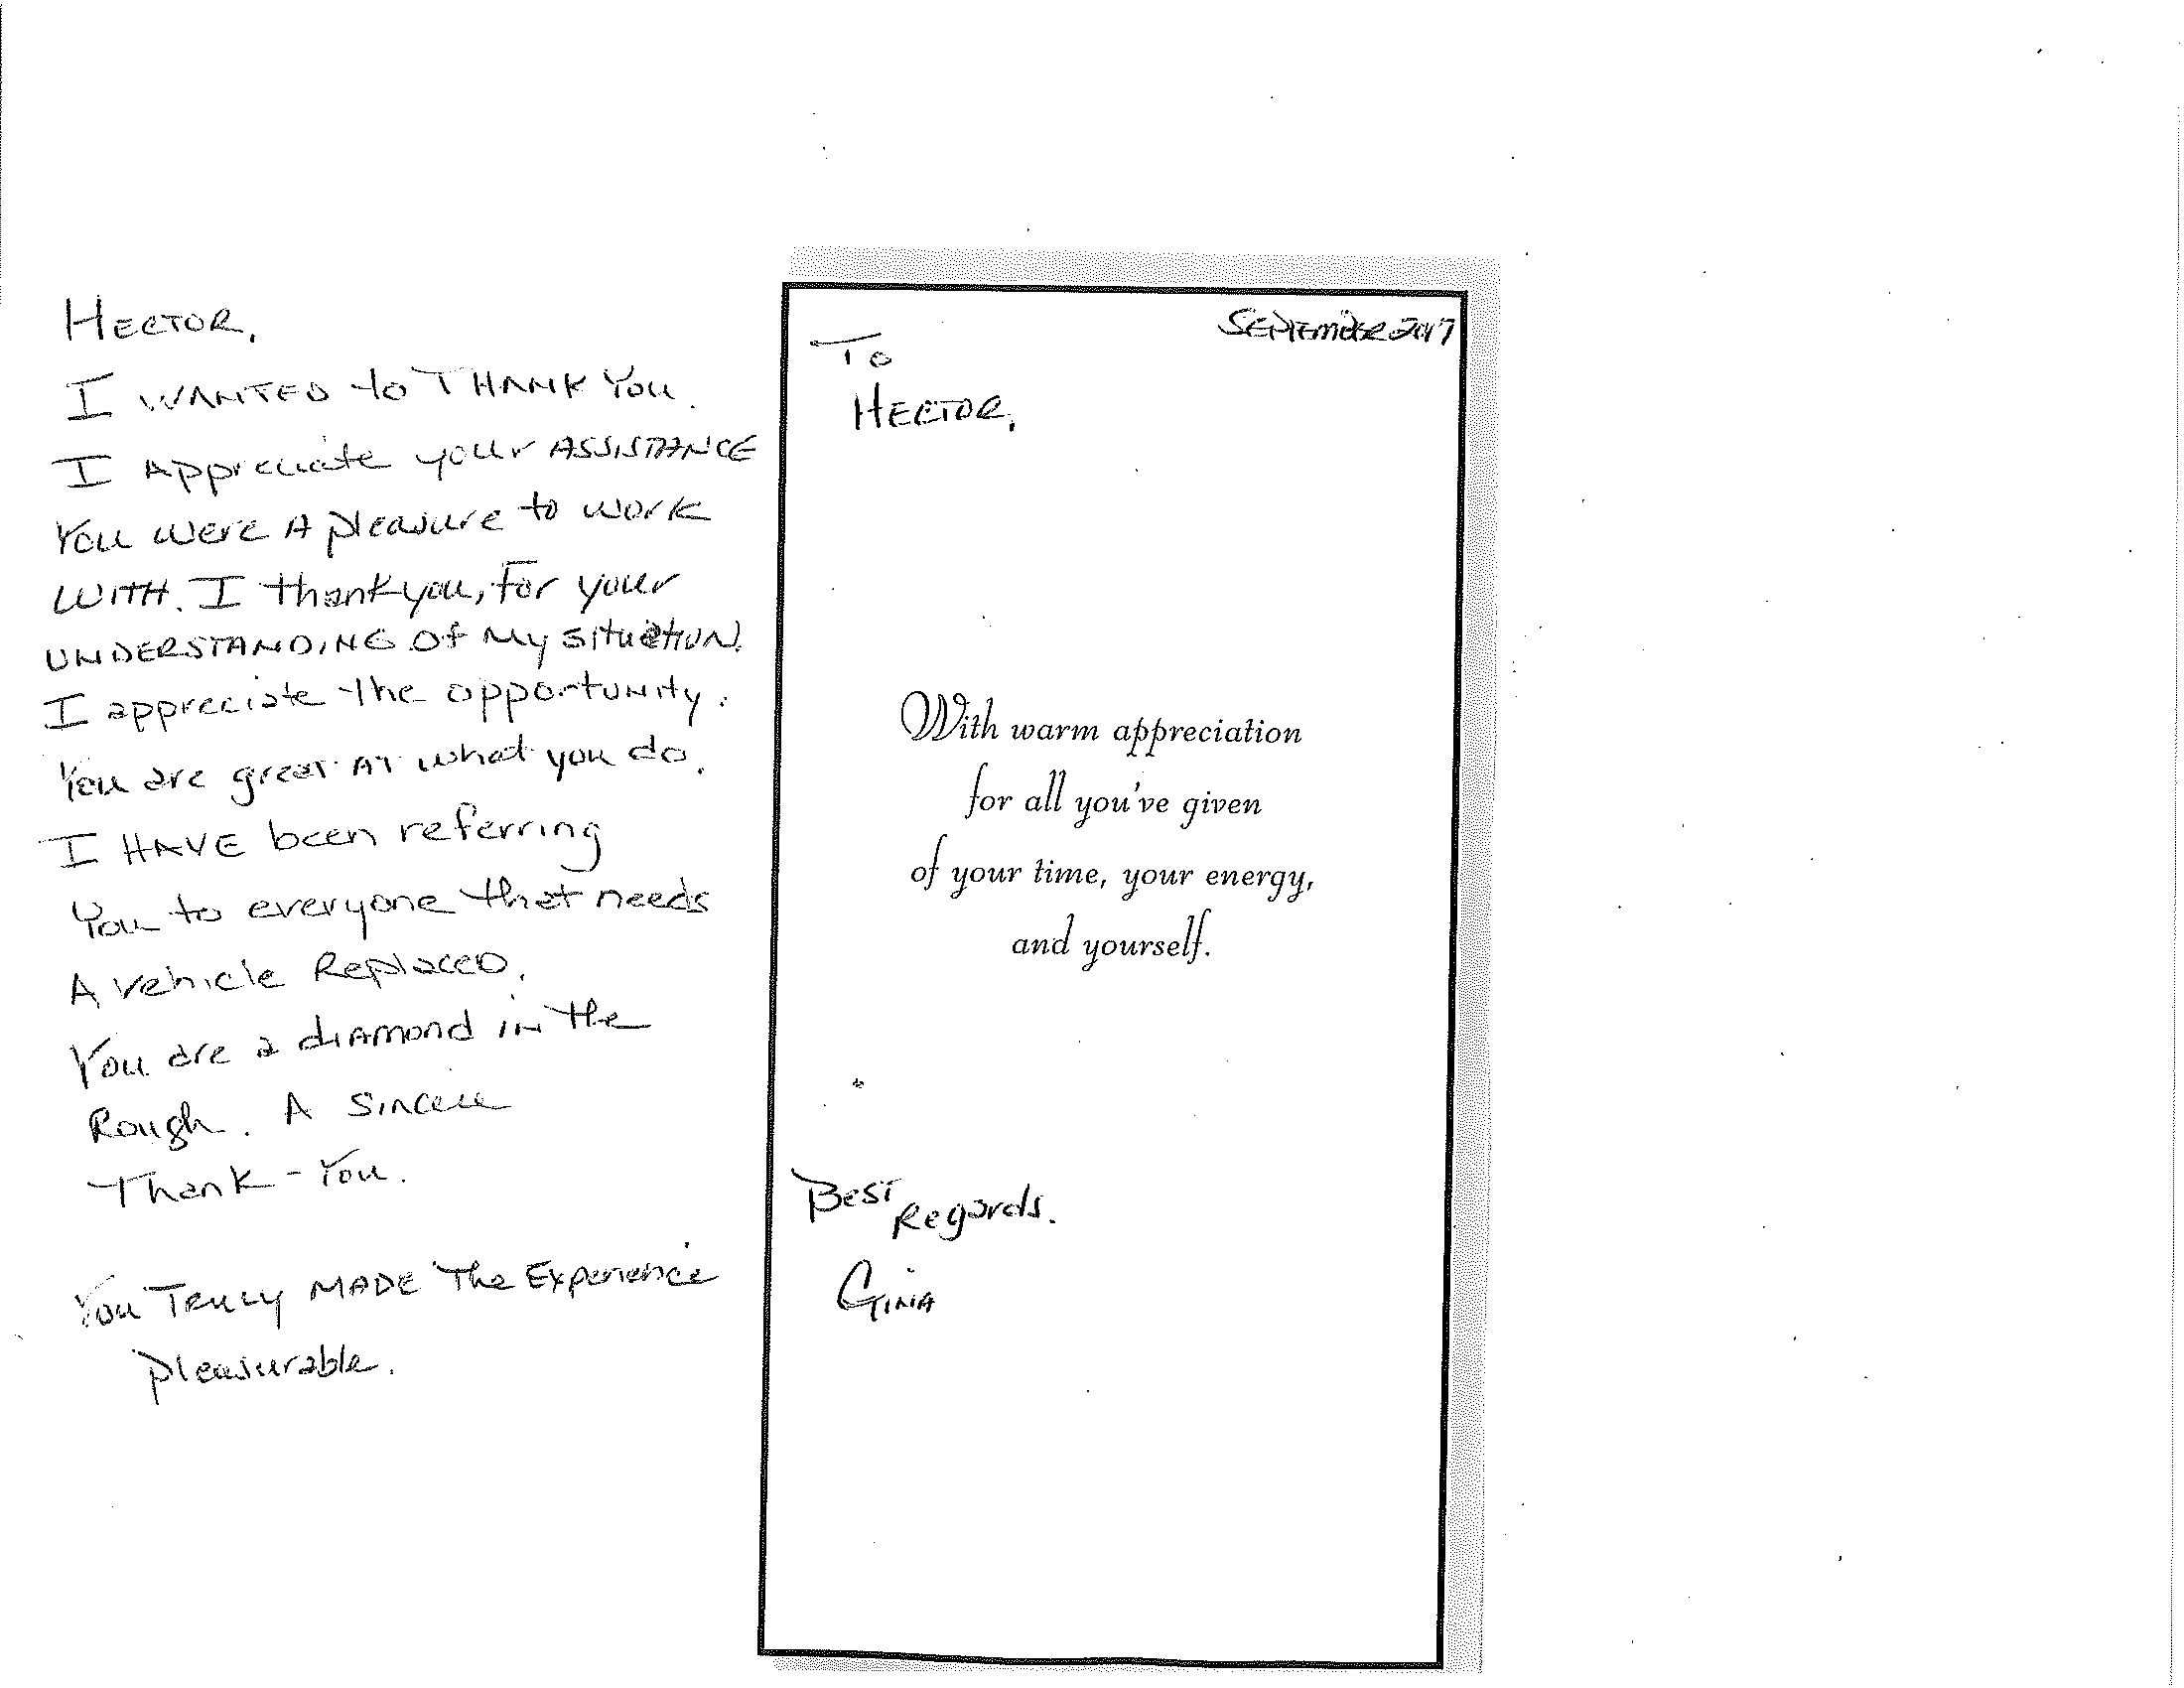 HECTOR,
I WANTED to THANK YOU.
I Appreciate your ASSISTANCE
You were A pleasure to work
WITH. I thank you, For your
UNDERSTANDING Of My situation.
I appreciate the opportunity.
You are great AT what you do.
I HAVE been referring
You to everyone that needs
A vehicle Replaced.
You are a diamond in the
Rough. A Sincere
Thank-You.
You Truly MADE The Experience
pleasurable.
SEPTEMBER 2017
To
HECTOR,
With warm appreciation
for all you've given
of your time, your energy,
and yourself.
Best
Regards.
GINA